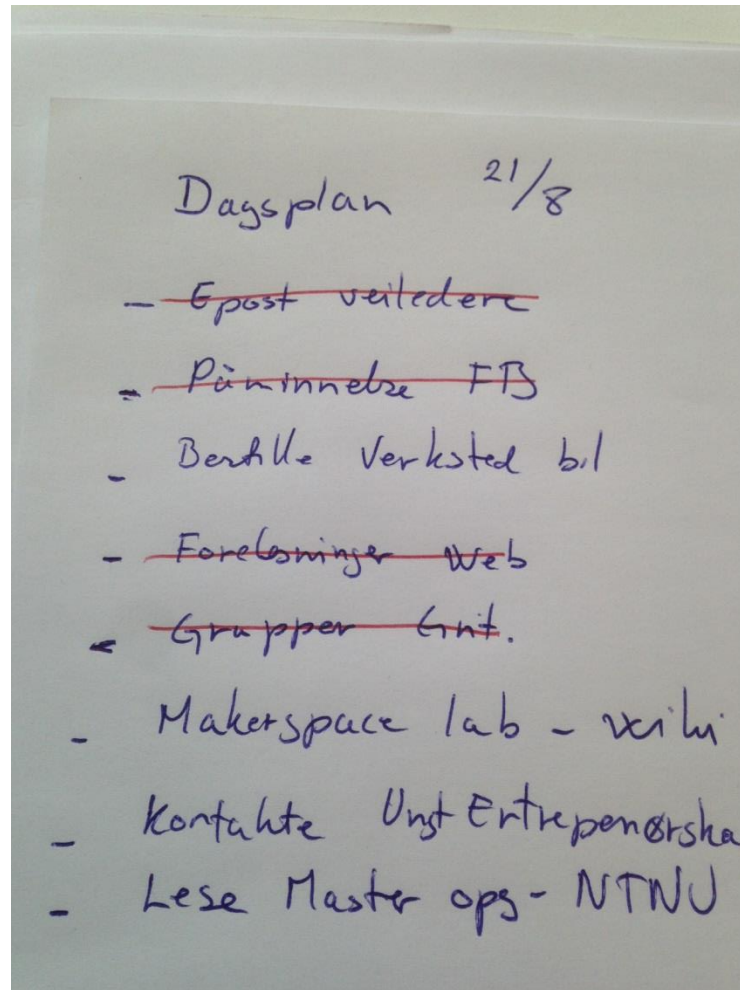 Dagsplan 21/8
- Epost veiledere
- Påminnelse FB
- Bestille Verksted bil
- Forelesninger Web
- Grupper Ent.
- Makerspace lab -
- Kontakte Ungt Entrepenørska
- Lese Master opg - NTNU